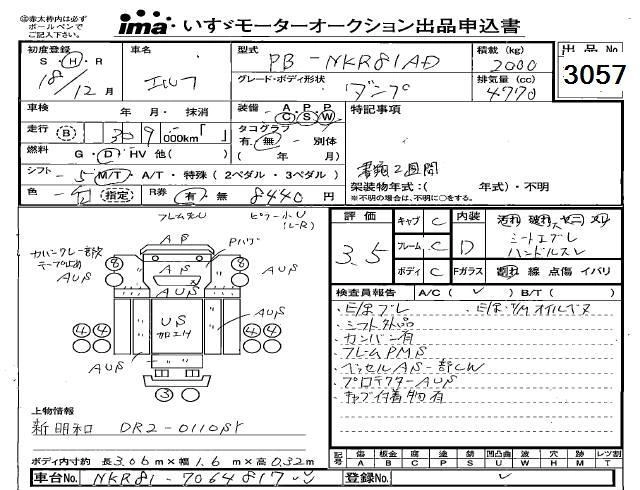 ㊟赤太枠内は必ず
ボールペンで
ご記入下さい。
ima いすゞモーターオークション出品申込書
初度登録 S・H・R 18/12月
車名 エルフ
型式 PB-NKR81AD
積載(kg) 2000
出品No 3057
グレード・ボディ形状 ダンプ
排気量(cc) 4770
車検 年・月・抹消
装備 A P P C S W
特記事項
走行 B 309 000km「 」
タコグラフ 有・無・別体 ( 年 月)
燃料 G・D・HV 他( )
書類2週間
シフト 5 M/T・A/T・特殊(2ペダル・3ペダル)
架装物年式:( 年式)・不明
※不明の場合は、不明に○をする。
色 白 指定 R券 有・無 8440円
評価 3.5
キャブ C
フレーム C
ボディ C
内装 D
シートエグレ
ハンドルスレ
Fガラス 割れ 線 点傷 イバリ
カバンクレー部欠
テープ止め
AUS
AS
Pハゲ
AUS
AUS
8
8
US
加工付
AUS
AUS
4 4
4 4
3
検査員報告 A/C( ) B/T( )
・E/Rブレ ・E/R・T/Mオイルモレ
・シフト外品
・カンバン有
・フレームPMS
・ベッセルAS一部CW
・プロテクターAUS
・キャブ付着物有
上物情報
新明和 DR2-0110SY
ボディ内寸約 長3.06m×幅1.6m×高0.32m
記号 傷A 板金B 腐C 塗P 錆S 凹凸曲U 波W 穴H 跡M レツ割T
車台No. NKR81-7064817
登録No.